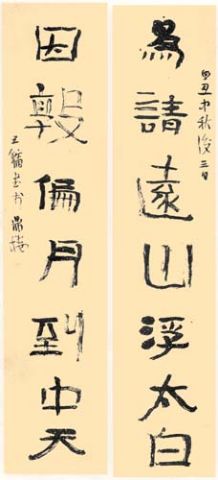 為請遠山浮太白
己丑中秋後三日
因敲偏月到中天
王鏞書於鼎樓